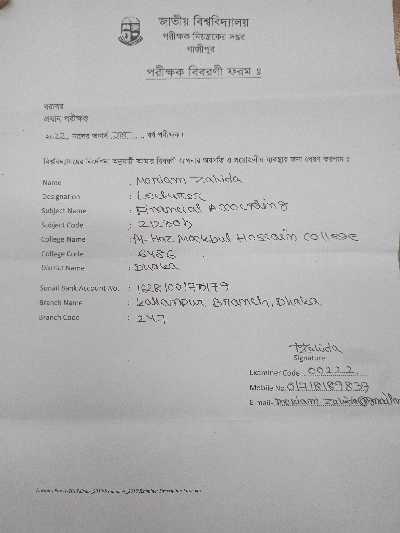 জাতীয় বিশ্ববিদ্যালয়
পরীক্ষক নিয়ন্ত্রকের দপ্তর
গাজীপুর
পরীক্ষক বিবরণী ফরম ঃ
বরাবর
প্রধান পরীক্ষক
২০২২ সালের অনার্স বর্ষ পরীক্ষা।
বিশ্ববিদ্যালয়ের নির্দেশনা অনুযায়ী আমার বিবরণী আপনার অবগতি ও প্রয়োজনীয় ব্যবস্থার জন্য প্রেরণ করলাম ঃ
Name : Mariam Zahida
Designation : Lecturer
Subject Name : Financial Accounting
Subject Code : 212303
College Name : Al-Haz Mockbul Hossain College
College Code : 6486
District Name : Dhaka
Sonali Bank Account No. :
Branch Name : Kallanpur Branch, Dhaka
Branch Code : 247
Zahida
Signature
Examiner Code 00222
Mobile No.
E-mail-